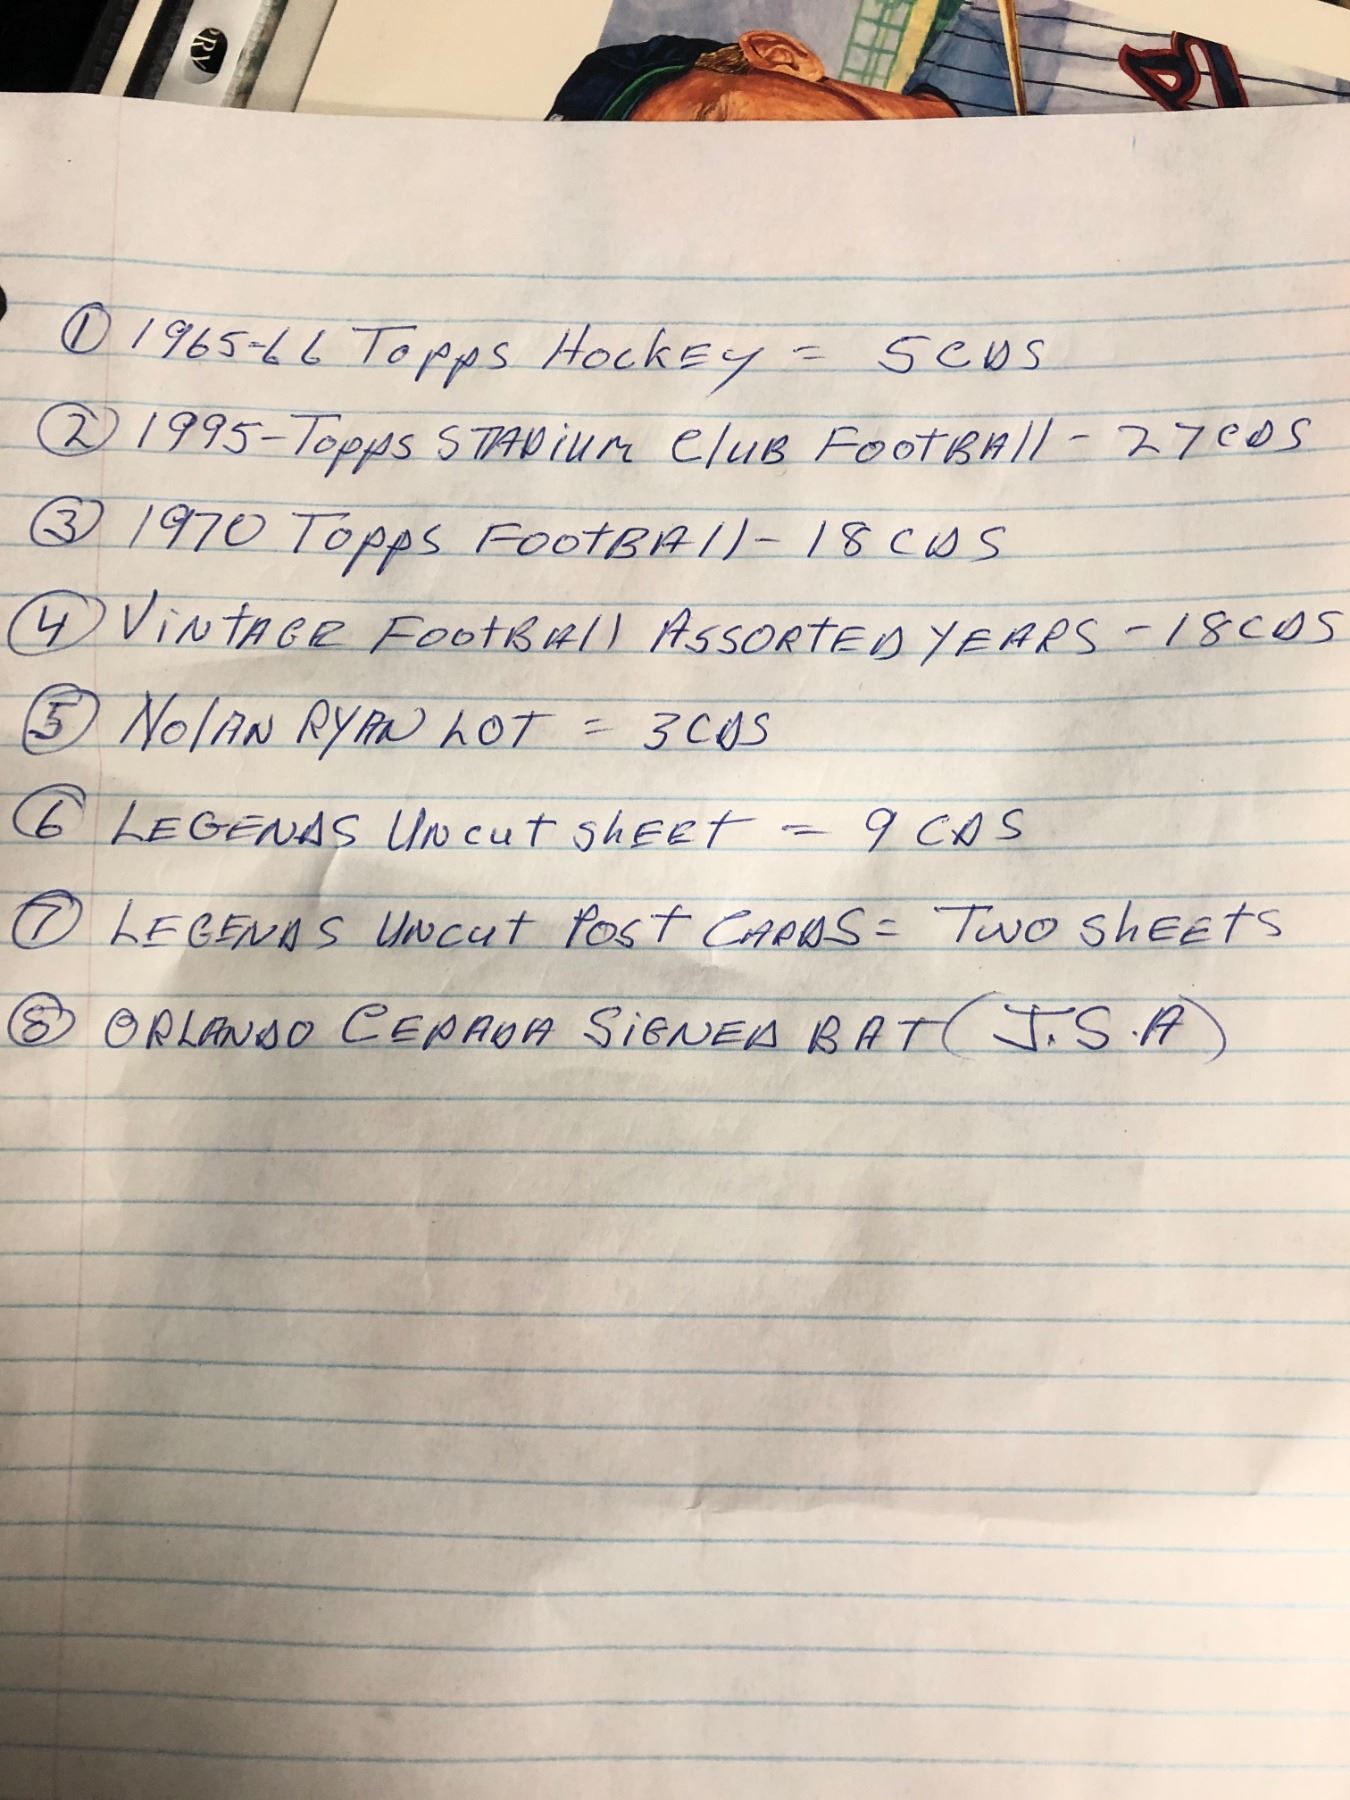 PRV
① 1965-66 Topps Hockey = 5 CDS
② 1995-Topps STADiUM Club FootBAll - 27 CDS
③ 1970 Topps FootBAll - 18 CDS
④ VINTAGE FootBAll ASSORTED YEARS - 18 CDS
⑤ NolAN RYAN LOT = 3 CDS
⑥ LEGENDS UNcut shEEt = 9 CDS
⑦ LEGENDS UNcut Post CARDS = Two shEEtS
⑧ ORLANDO CEPADA SiGNED BAT (J.S.A)